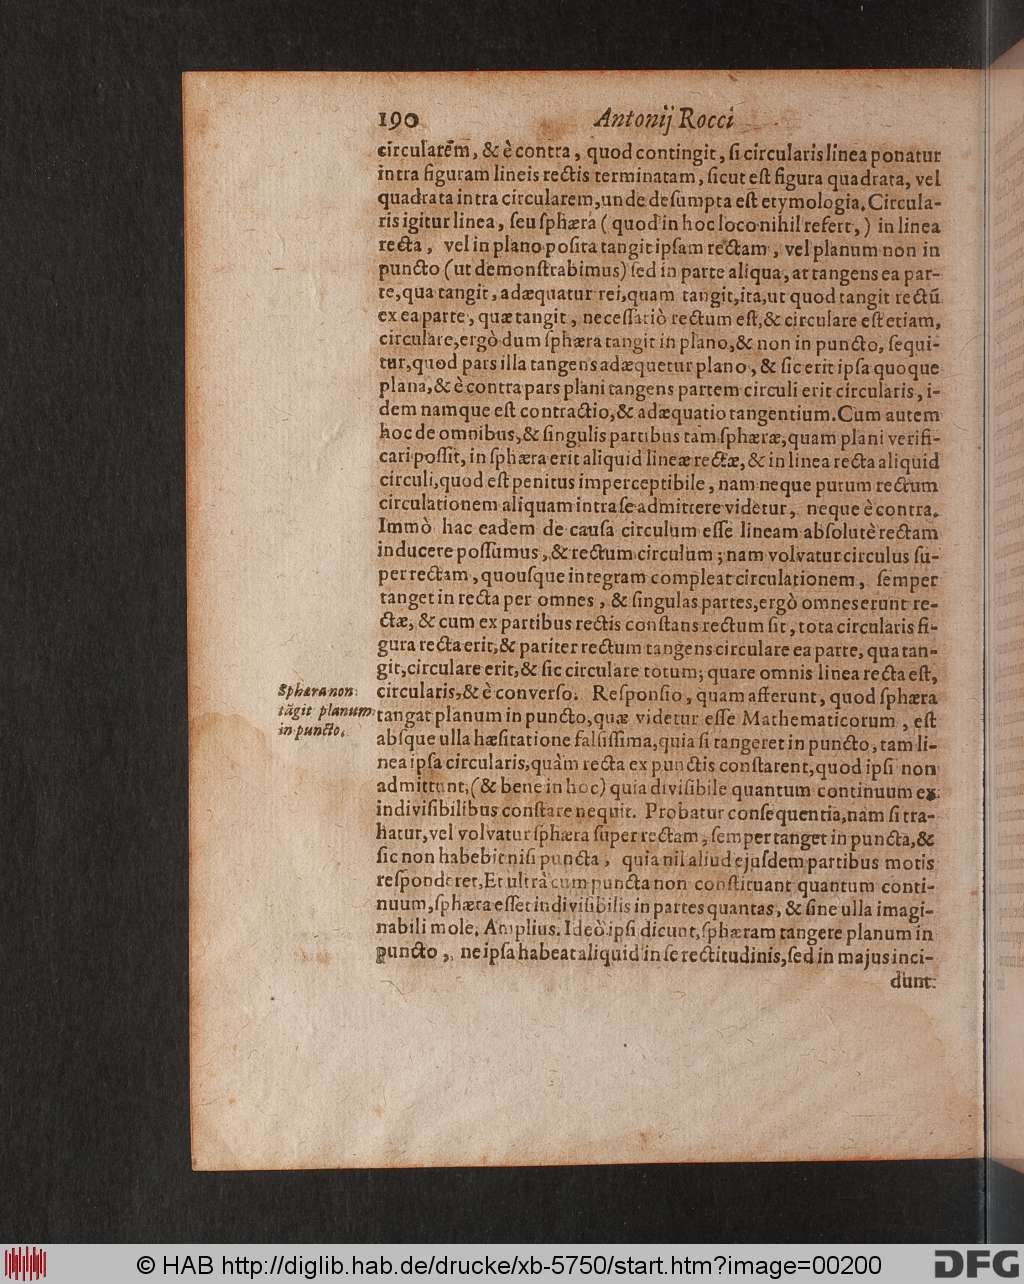 190 Antonij Rocci
circularẽm, & è contra, quod contingit, ſi circularis linea ponatur
intra figuram lineis rectis terminatam, ſicut eſt figura quadrata, vel
quadrata intra circularem, unde deſumpta eſt etymologia. Circula-
ris igitur linea, ſeu ſphæra (quod in hoc loco nihil refert,) in linea
recta, vel in plano poſita tangit ipſam rectam, vel planum non in
puncto (ut demonſtrabimus) ſed in parte aliqua, at tangens ea par-
te, qua tangit, adæquatur rei, quam tangit, ita, ut quod tangit rectũ
ex ea parte, quæ tangit, neceſſariò rectum eſt, & circulare eſt etiam,
circulare, ergò dum ſphæra tangit in plano, & non in puncto, ſequi-
tur, quod pars illa tangens adæquetur plano, & ſic erit ipſa quoque
plana, & è contra pars plani tangens partem circuli erit circularis, i-
dem namque eſt contractio, & adæquatio tangentium. Cum autem
hoc de omnibus, & ſingulis partibus tam ſphæræ, quam plani verifi-
cari poſſit, in ſphæra erit aliquid lineæ rectæ, & in linea recta aliquid
circuli, quod eſt penitus imperceptibile, nam neque purum rectum
circulationem aliquam intra ſe admittere videtur, neque è contra.
Immò hac eadem de cauſa circulum eſſe lineam abſolutè rectam
inducere poſſumus, & rectum circulum; nam volvatur circulus ſu-
per rectam, quouſque integram compleat circulationem, ſemper
tanget in recta per omnes, & ſingulas partes, ergò omnes erunt re-
ctæ, & cum ex partibus rectis conſtans rectum ſit, tota circularis fi-
gura recta erit, & pariter rectum tangens circulare ea parte, qua tan-
git, circulare erit, & ſic circulare totum; quare omnis linea recta eſt,
circularis, & è converſo. Reſponſio, quam afferunt, quod ſphæra
tangat planum in puncto, quæ videtur eſſe Mathematicorum, eſt
abſque ulla hæſitatione falſiſſima, quia ſi tangeret in puncto, tam li-
nea ipſa circularis, quàm recta ex punctis conſtarent, quod ipſi non
admittunt, (& bene in hoc) quia diviſibile quantum continuum ex
indiviſibilibus conſtare nequit. Probatur conſequentia, nam ſi tra-
hatur, vel volvatur ſphæra ſuper rectam, ſemper tanget in puncta, &
ſic non habebit niſi puncta, quia nil aliud ejuſdem partibus motis
reſponderet, Et ultrà cum puncta non conſtituant quantum conti-
nuum, ſphæra eſſet indiviſibilis in partes quantas, & ſine ulla imagi-
nabili mole. Amplius. Ideò ipſi dicunt, ſphæram tangere planum in
puncto, ne ipſa habeat aliquid in ſe rectitudinis, ſed in majus inci-
dunt:
Sphæra non
tãgit planum
in puncto.
© HAB http://diglib.hab.de/drucke/xb-5750/start.htm?image=00200
DFG